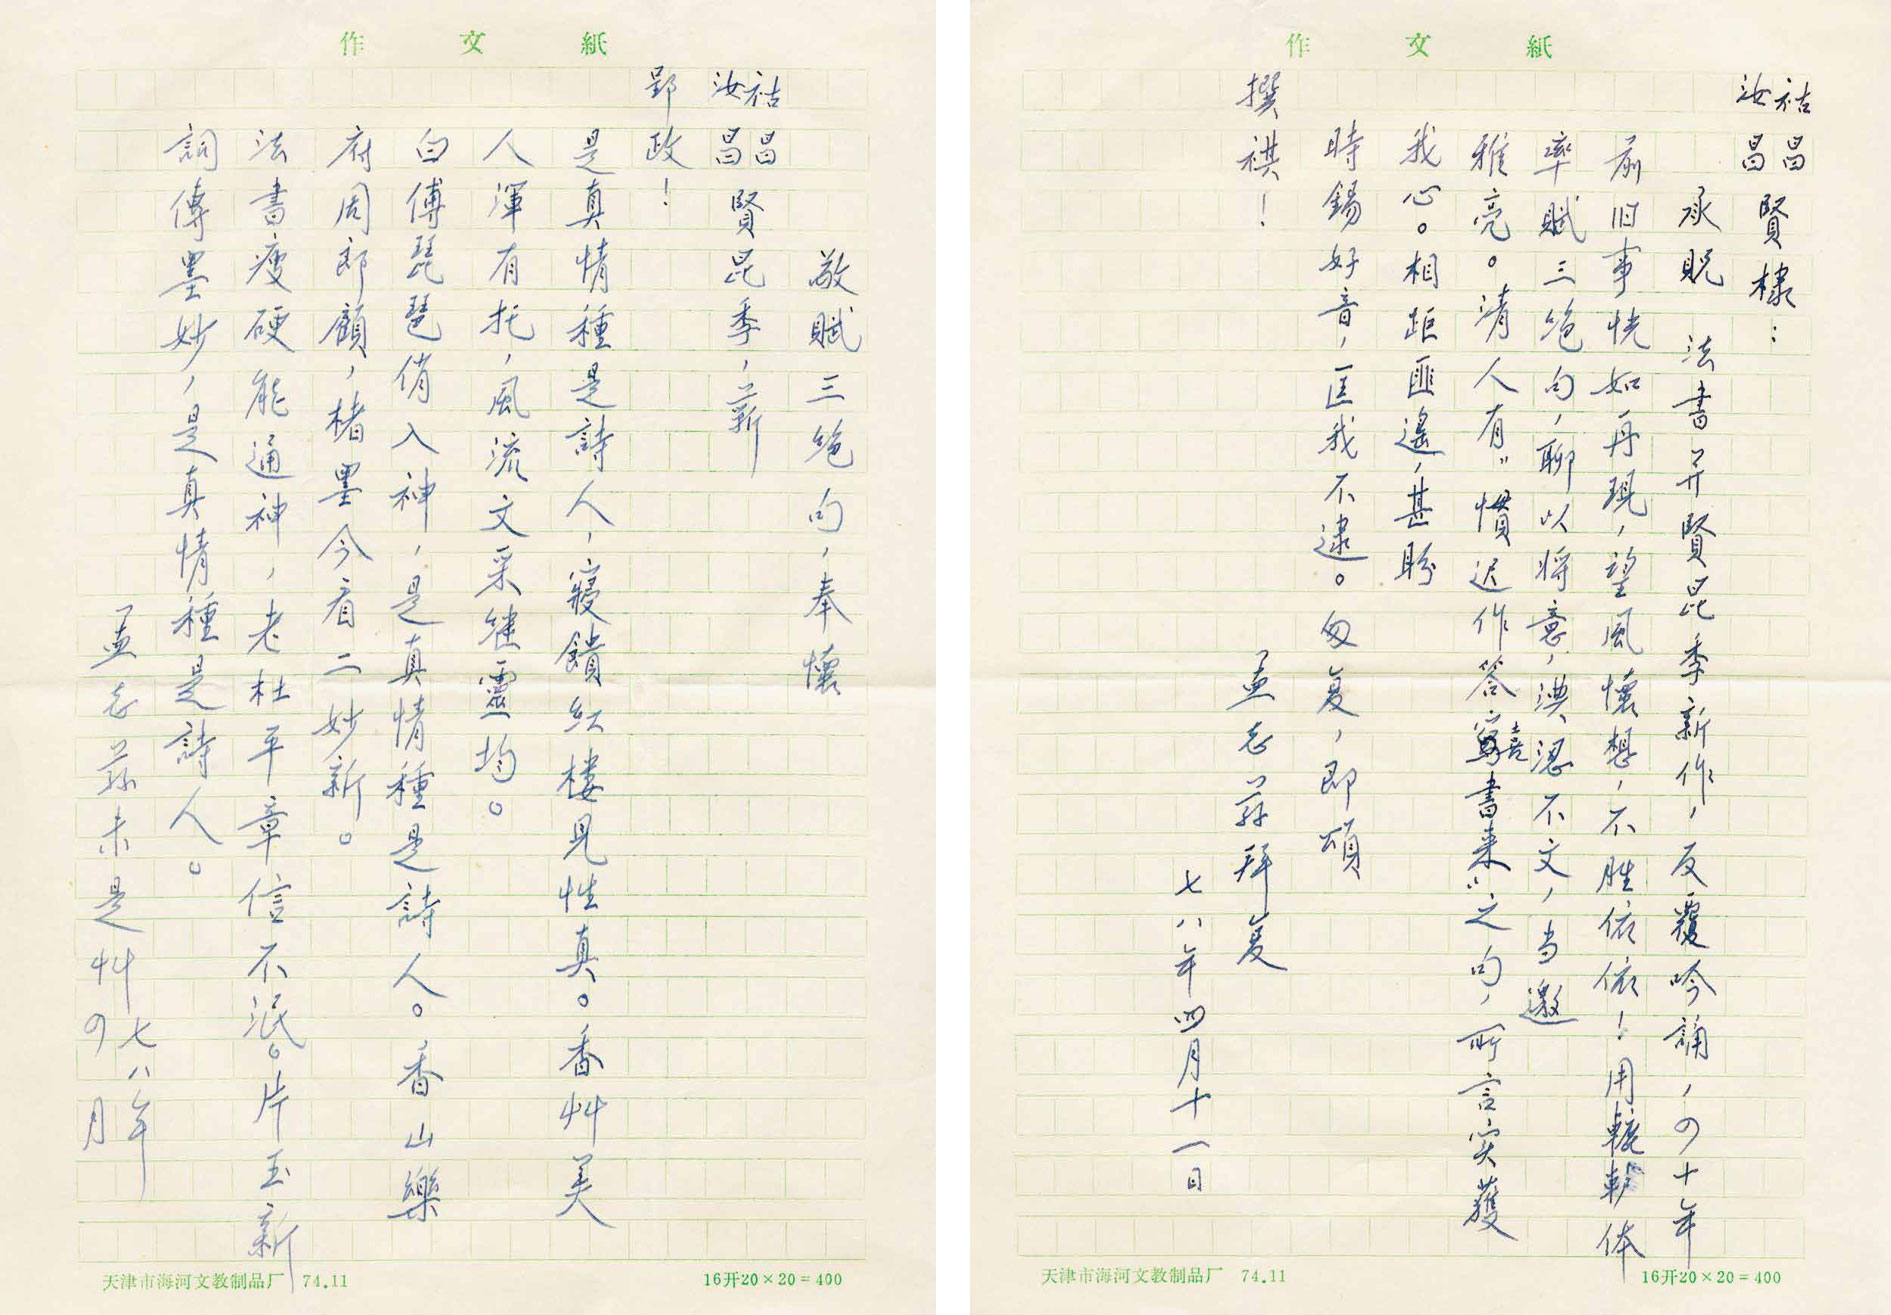 作文紙
祜昌
汝昌
賢棣：
承貺　法書并賢昆季新作，反覆吟誦，四十年
前旧事恍如再現，望風懷想，不胜依依！用轆轤体
率賦三绝句，聊以將意，涊不文，当邀
雅亮。清人有“慣迟作答
喜書来”之句，所言实獲
我心。相距匪遙，甚盼
時錫好音，匡我不逮。匆复，即頌
撰祺！
孟志蓀拜复
七八年四月十一日
天津市海河文教制品厂 74.11
16开20×20=400
作文紙
敬賦三绝句，奉懷
祜昌
汝昌
賢昆季，蘄
郢政！
是真情種是詩人，寢饋红楼見性真。香艸美
人渾有托，風流文采継靈均。
白傅琵琶俏入神，是真情種是詩人。香山樂
府周郎顧，楮墨今看二妙新。
法書瘦硬能通神，老杜平章信不泯。片玉新
詞傳墨妙，是真情種是詩人。
孟志蓀未是艸 七八年四月
天津市海河文教制品厂 74.11
16开20×20=400